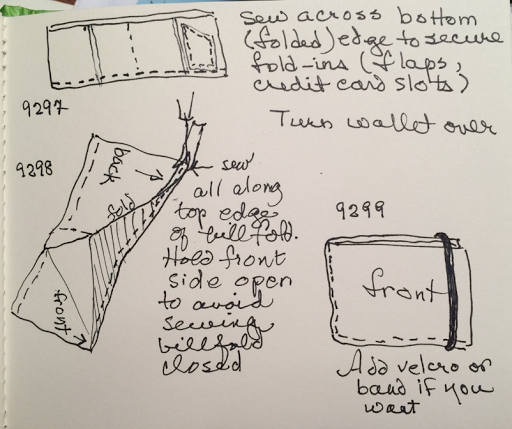 Sew across bottom
(folded) edge to secure
fold-ins (flaps,
credit card slots)
9297
Turn wallet over
9298
back
flap
front
sew
all along
top edge
of billfold.
Hold front
side open
to avoid
sewing
billfold
closed
9299
front
Add velcro or
band if you
want